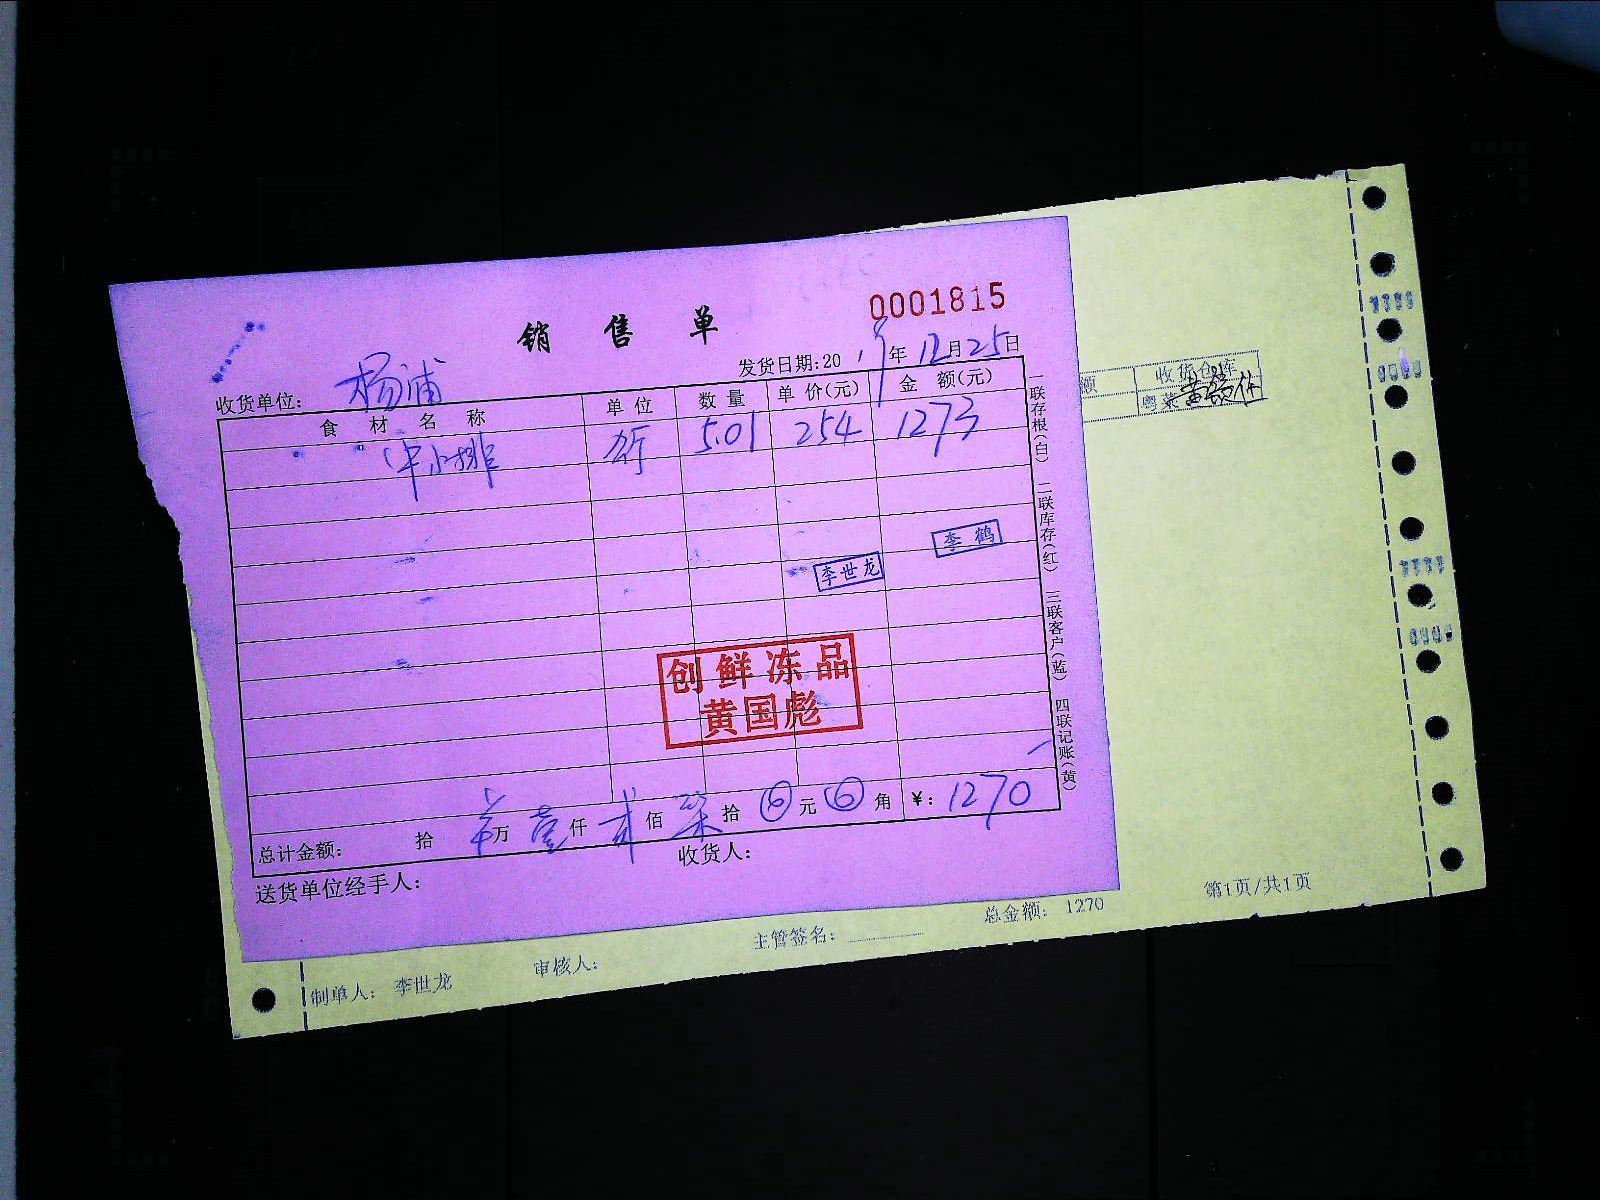 销售单
0001815
发货日期:2019年12月25日
收货单位: 杨浦
食材名称 单位 数量 单价(元) 金额(元)
牛小排 斤 5.01 254 1273
李鹤
李世龙
创鲜冻品
黄国彪
总计金额: 拾 万壹仟贰佰柒拾 元 角 ¥: 1270
送货单位经手人: 收货人:
一联存根(白) 二联库存(红) 三联客户(蓝) 四联记账(黄)
额 收货仓库
粤菜
制单人: 李世龙 审核人: 主管签名: 总金额: 1270 第1页/共1页